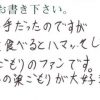 お書き下さい。
手だったのですが
食べるとハマッてし
ごもりのファンです。
の巣ごもりが大好き